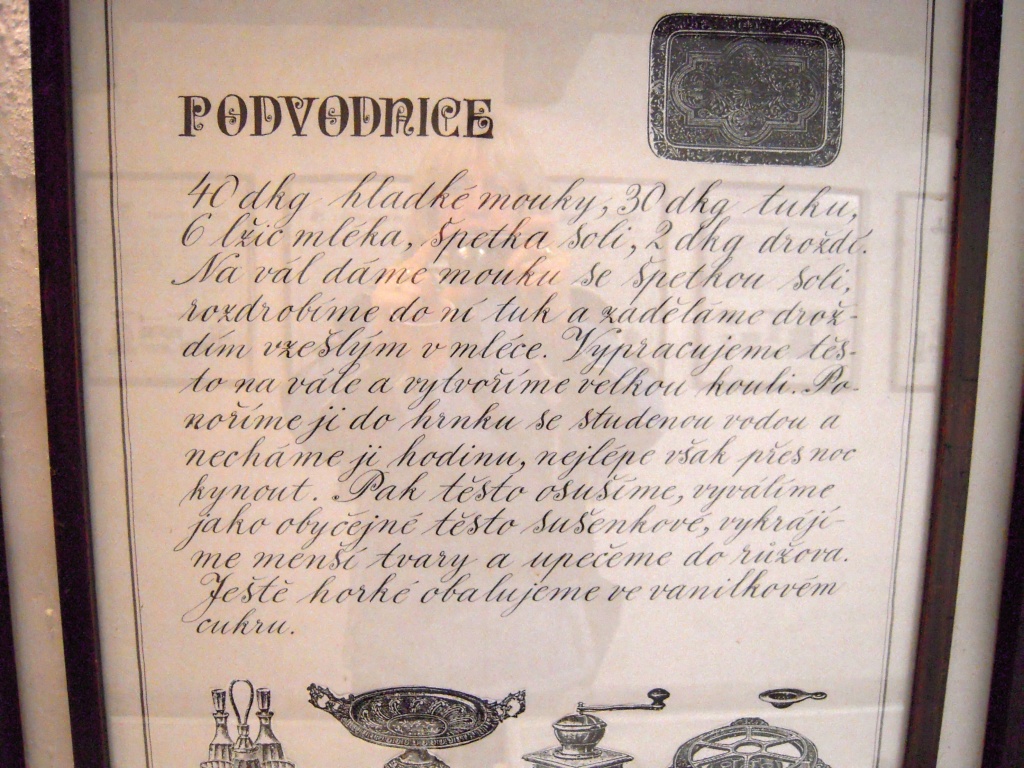 PODVODNICE
40 dkg hladké mouky, 30 dkg tuku,
6 lžic mléka, špetka soli, 2 dkg droždí.
Na vál dáme mouku se špetkou soli,
rozdrobíme do ní tuk a zaděláme drož-
dím vzešlým v mléce. Vypracujeme těs-
to na vále a vytvoříme velkou kouli. Po-
noříme ji do hrnku se studenou vodou a
necháme ji hodinu, nejlépe však přes noc
kynout. Pak těsto osušíme, vyválíme
jako obyčejné těsto sušenkové, vykrájí-
me menší tvary a upečeme do růžova.
Ještě horké obalujeme ve vanilkovém
cukru.